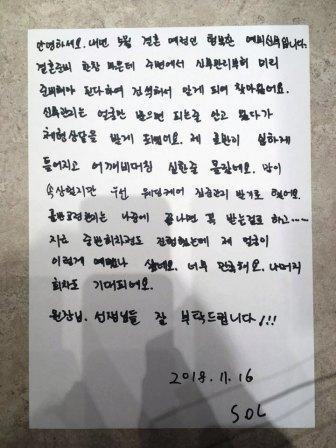 안녕하세요. 내년 5월 결혼 예정인 행복한 예비신부입니다.
결혼준비 한창 바쁜데 주변에서 신부관리부터 미리
준비해야 된다하여 검색해서 알게 되어 찾아왔어요.
신부관리는 얼굴만 받으면 되는줄 알고 왔다가
체형상담을 받게 되었어요. 제 골반이 심하게
틀어지고 어깨비대칭 심한줄 몰랐네요. 많이
속상했지만 우선 웨딩케어 집중관리 받기로 했어요.
골반교정관리는 나중에 끝나면 꼭 받는걸로 하고……
지금 중반회차정도 진행했는데 제 얼굴이
이렇게 예뻤나 싶네요. 너무 만족해요. 나머지
회차도 기대되네요.
원장님. 선생님들 잘 부탁드립니다!!!
2018. 11. 16
SOL